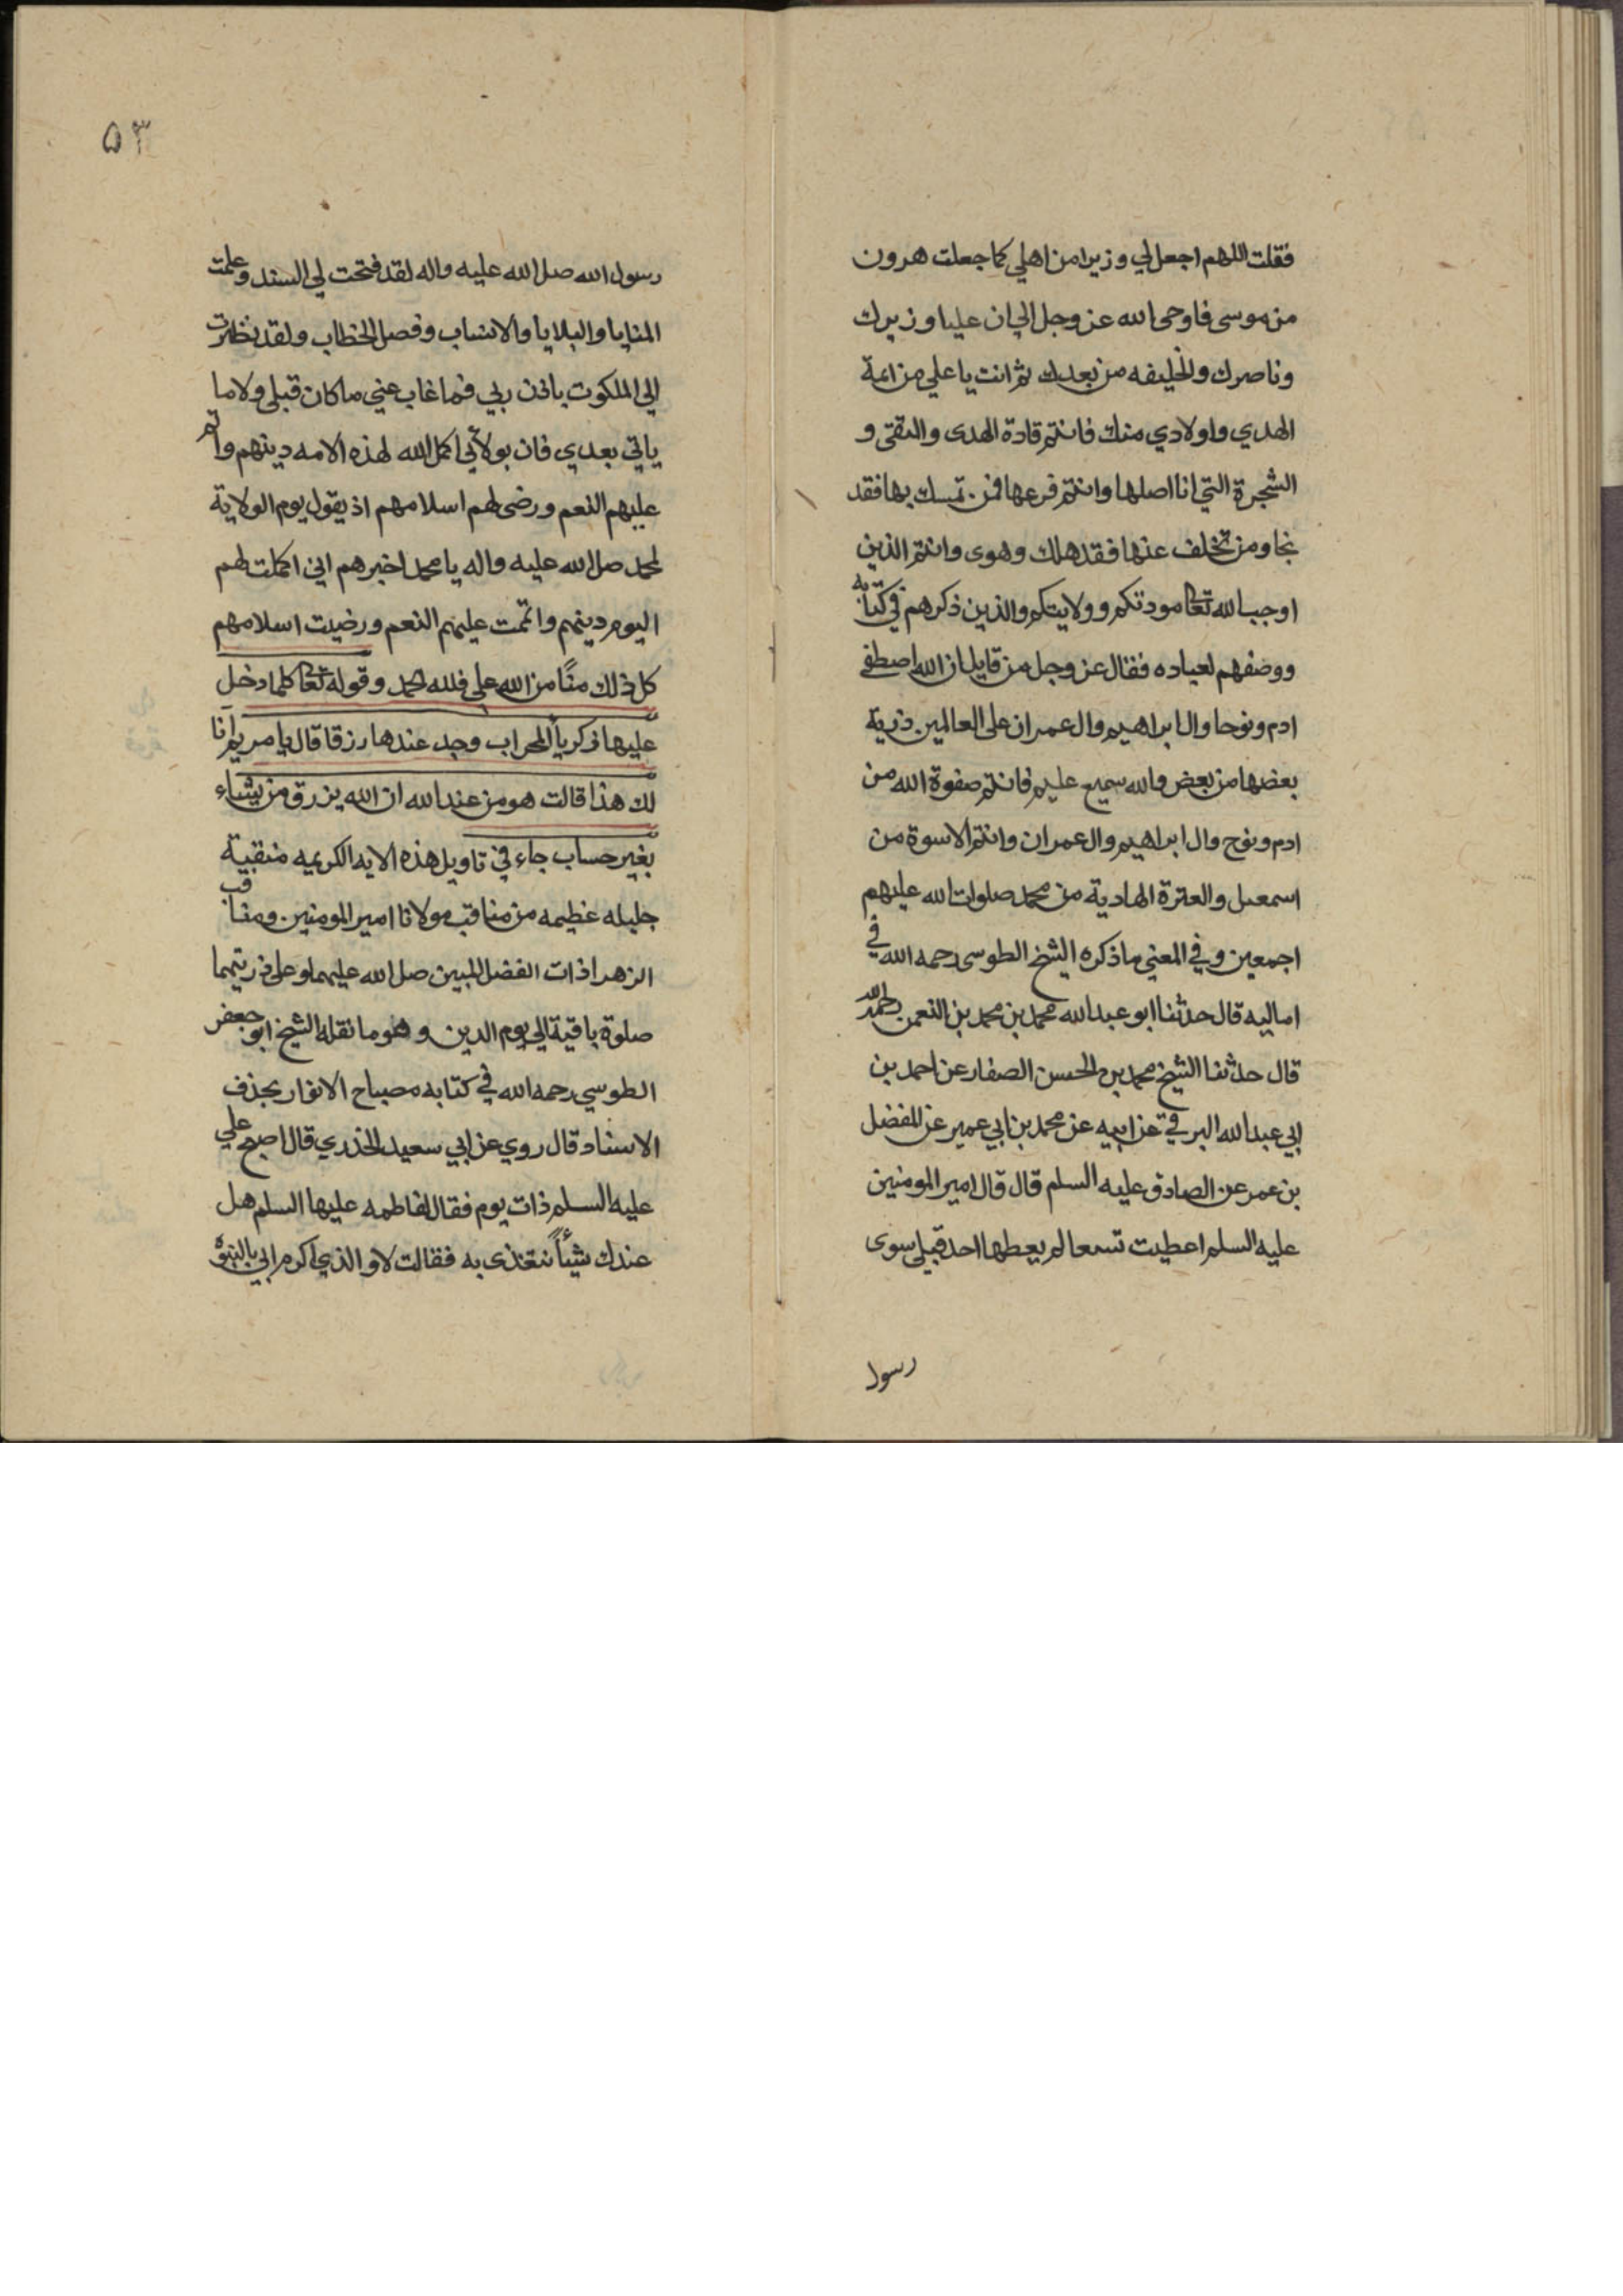 فقلت اللهم اجعل لي وزيرا من اهلي كما جعلت هرون
من موسى فاوحى الله عز وجل الي ان عليا وزيرك
وناصرك والخليفه من بعدك ثم انت يا علي من ائمة
الهدي واولادي منك فانتم قادة الهدى والتقى و
الشجرة التي انا اصلها وانتم فرعها فمن تمسك بها فقد
نجا ومن تخلف عنها فقد هلك وهوى وانتم الذين
اوجب الله تعا مودتكم وولايتكم والذين ذكرهم في كتابه
ووصفهم لعباده فقال عز وجل من قايل ان الله اصطفى
ادم ونوحا وال ابراهيم وال عمران على العالمين ذرية
بعضها من بعض والله سميع عليم فانتم صفوة الله من
ادم ونوح وال ابراهيم وال عمران وانتم الاسوة من
اسمعيل والعترة الهادية من محمد صلوات الله عليهم
اجمعين وفي المعني ما ذكره الشيخ الطوسى رحمه الله في
اماليه قال حدثنا ابو عبد الله محمد بن محمد بن النعمن رحمه الله
قال حدثنا الشيخ محمد بن الحسن الصفار عن احمد بن
ابي عبد الله البرقي عن ابيه عن محمد بن ابي عمير عن المفضل
بن عمر عن الصادق عليه السلم قال قال امير المومنين
عليه السلم اعطيت تسعا لم يعطها احد قبلي سوى
رسول
٥٣
رسول الله صل الله عليه واله لقد فتحت لي السند وعلمت
المنايا والبلايا والانساب وفصل الخطاب ولقد نظرت
الي الملكوت باذن ربي فما غاب عني ما كان قبلي ولا ما
ياتي بعدي فان بولاتي اكمل الله لهذه الامه دينهم واتم
عليهم النعم ورضى لهم اسلامهم اذ يقول يوم الولاية
لمحمد صل الله عليه واله يا محمد اخبرهم اني اكملت لهم
اليوم دينهم واتممت عليهم النعم ورضيت اسلامهم
كل ذلك منًا من الله علي فلله الحمد وقوله تعا كلما دخل
عليها زكريا المحراب وجد عندها رزقا قال يا مريم انا
لك هذا قالت هو من عند الله ان الله يرزق من يشاء
بغير حساب جاء في تاويل هذه الايه الكريمه منقبية
جليله عظيمه من مناقب مولانا امير المومنين ومناقب
الزهرا ذات الفضل المبين صل الله عليهما وعلى ذريتهما
صلوة باقية الي يوم الدين وهو ما نقله الشيخ ابو جعفر
الطوسي رحمه الله في كتابه مصباح الانوار بحذف
الاسناد قال روي عن ابي سعيد الخذري قال اصبح علي
عليه السلم ذات يوم فقال لفاطمه عليها السلم هل
عندك شيئاً نتغذى به فقالت لا والذي اكرم ابي بالنبوة